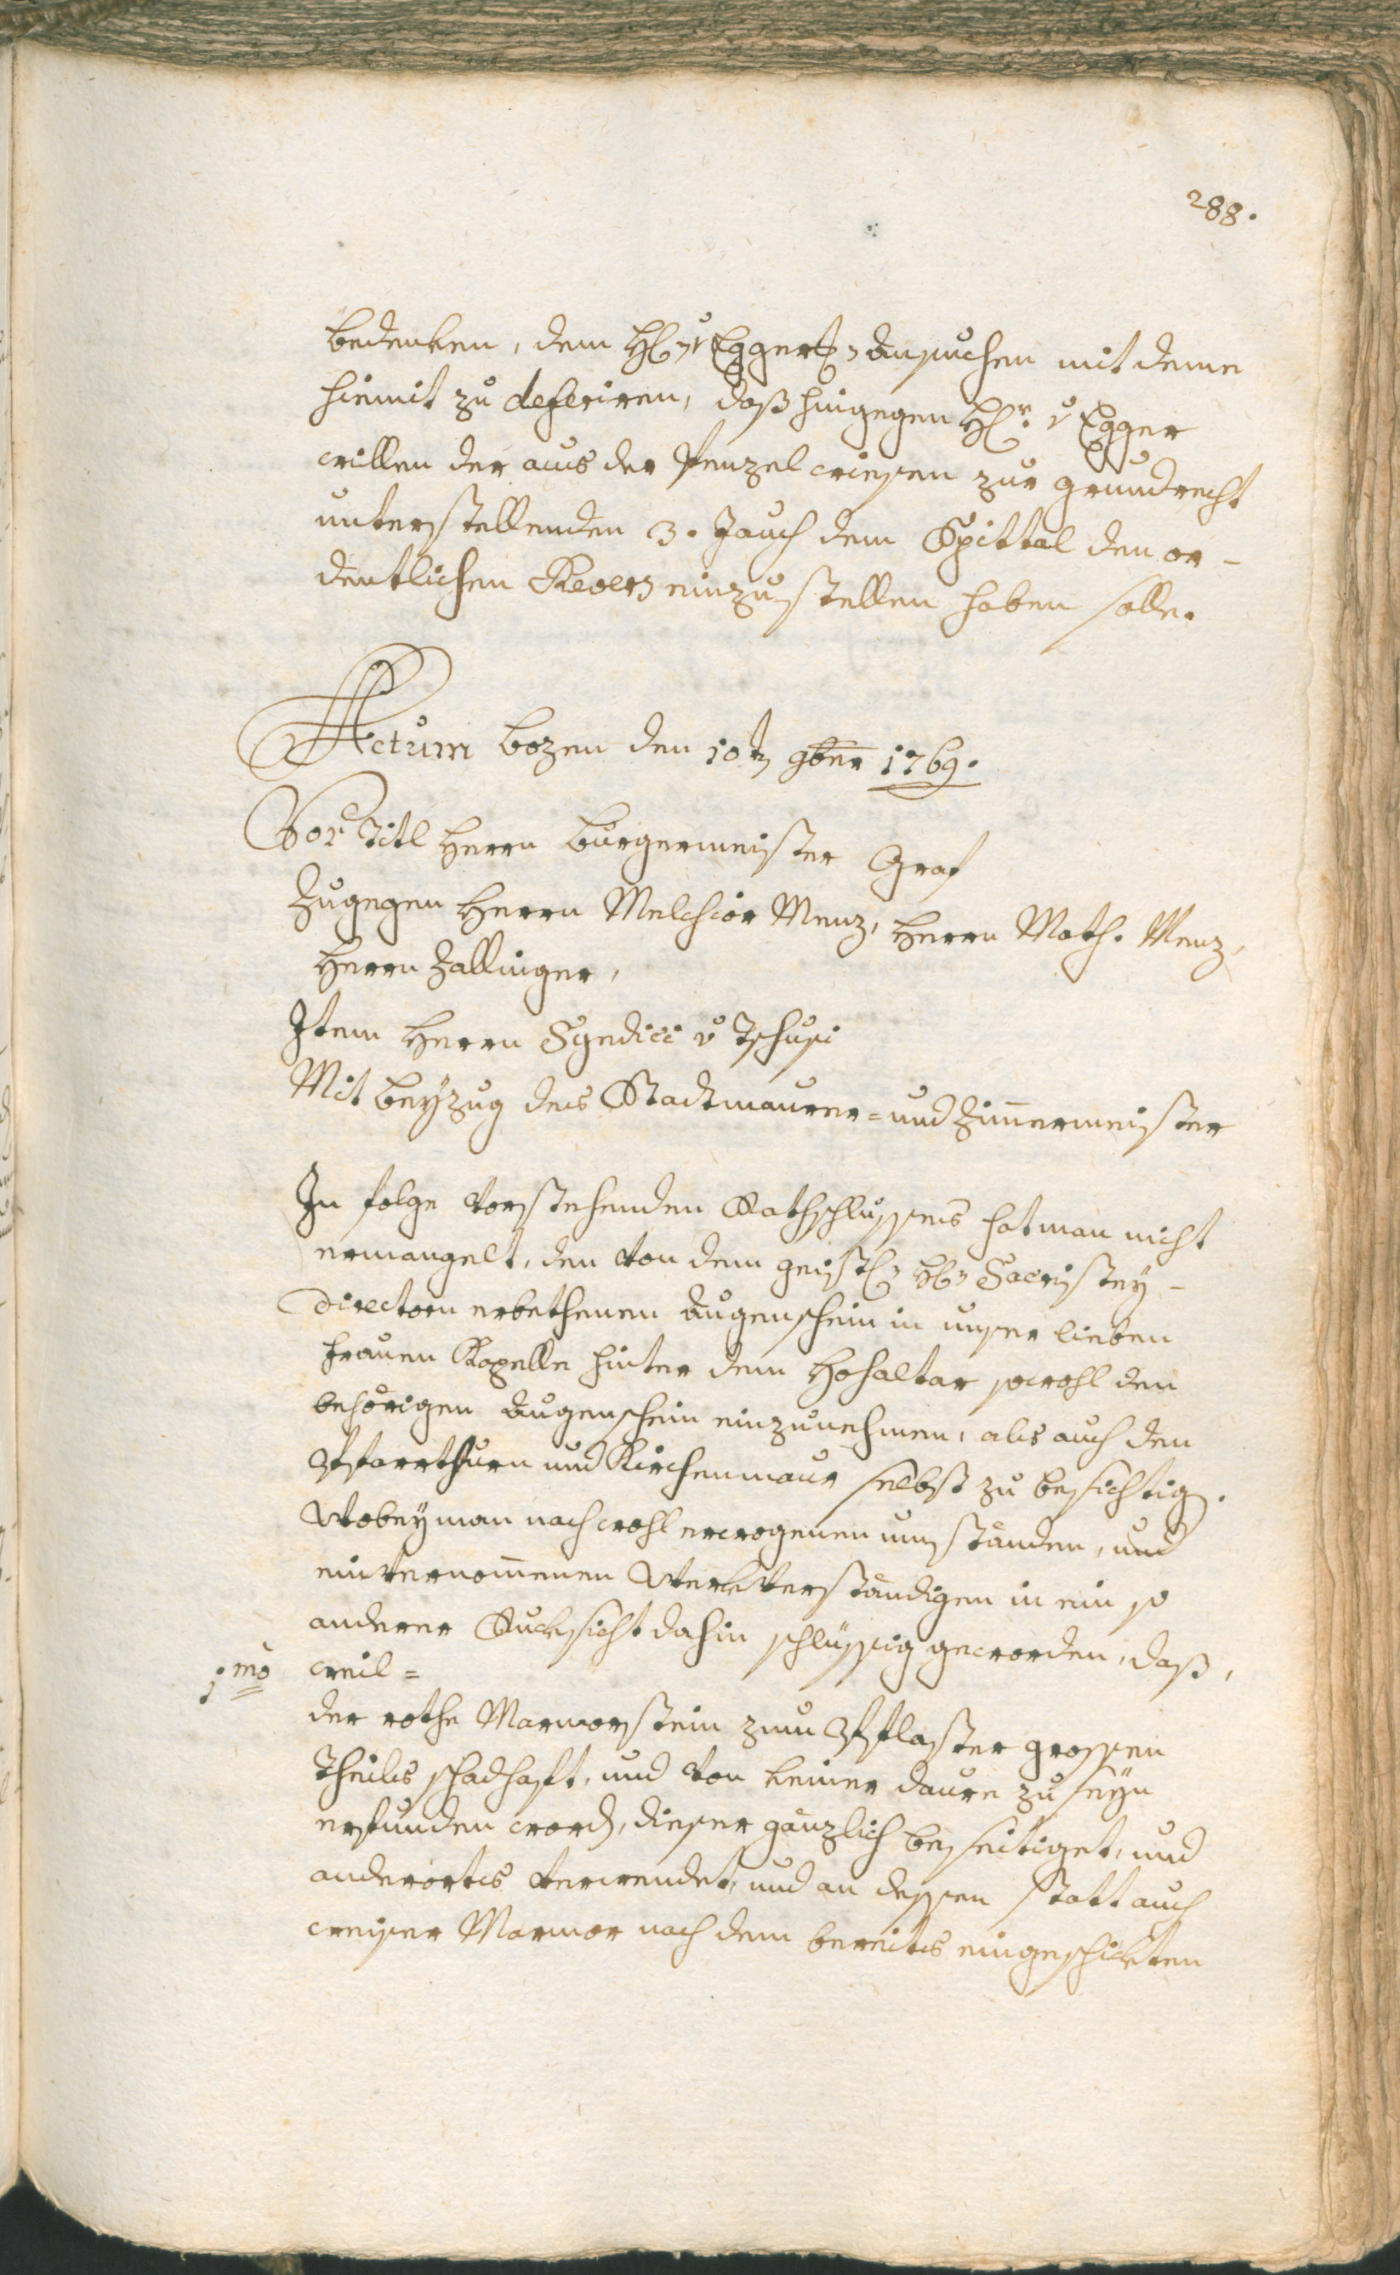 288.
bedenken, dem H: v Eggerl: Ansuchen mit deme
hiemit zu deferiren, daß hingegen Hr: v Egger
willen der aus der Penzelwiesen zur grundrecht
unterstellenden 3. Jauch dem Spittal den or-
dentlichen Revers einzustellen haben solle.
Actum bozen den 10t 9ber 1769.
Vor Titl Herrn burgermeister Graf
Zugegen Herrn Melchior Menz, Herrn Math. Menz,
Herrn Zallinger,
Item Herrn Syndici v Tschusi
Mit beyzug des Stadtmaurer= und Zimermeister
In folge vorstehenden Rathschlusses hat man nicht
ermangelt, den von dem geistl: H: Sacristey-
Directorn erbethenen Augenschein in unser lieben
Frauen Kapelle hinter dem Hohaltar sowohl den
behörigen Augenschein einzunehmen, als auch den
Pfarrthurn und Kirchenmaur selbst zu besichtig.
Wobey man nach wohl erwogenen umständen, und
einvernomenen Werkverständigen in ein so
anderer Rucksicht dahin schlüssig geworden, daß,
1mo weil=
der rothe Marmorstein zum Pflaster grossen
Theils schadhaft, und von keiner daure zu seyn
erfunden word, dieser gänzlich beseitiget, und
anderorts verwendet, und an dessen statt auch
weiser Marmor nach dem bereits eingeschikten